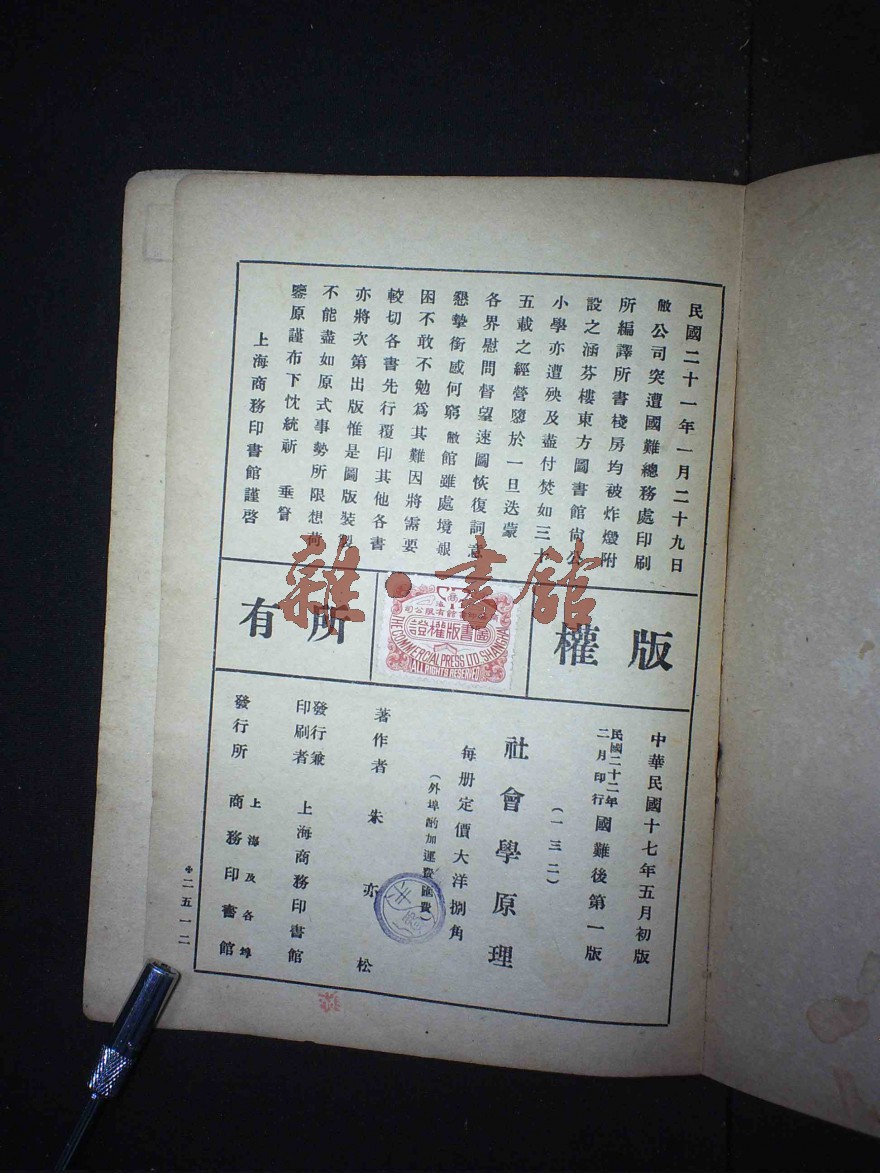 民國二十一年一月二十九日
敝公司突遭國難總務處印刷
所編譯所書棧房均被炸燬附
設之涵芬樓東方圖書館尙公
小學亦遭殃及盡付焚如三十
五載之經營隳於一旦迭蒙
各界慰問督望速圖恢復詞意
懇摯銜感何窮敝館雖處境艱
困不敢不勉爲其難因將需要
較切各書先行覆印其他各書
亦將次第出版惟是圖版裝製
不能盡如原式事勢所限想荷
鑒原謹布下忱統祈 垂詧
上海商務印書館謹啓
版權
所有
圖書版權證
THE COMMERCIAL PRESS LTD. SHANGHAI
ALL RIGHTS RESERVED
雜·書館
中華民國十七年五月初版
民國二十二年
二月印行
國難後第一版
(一三二)
社會學原理
每册定價大洋捌角
(外埠酌加運費匯費)
著作者 朱亦松
發行兼
印刷者
上海商務印書館
發行所
上海及各埠
商務印書館
二五一二